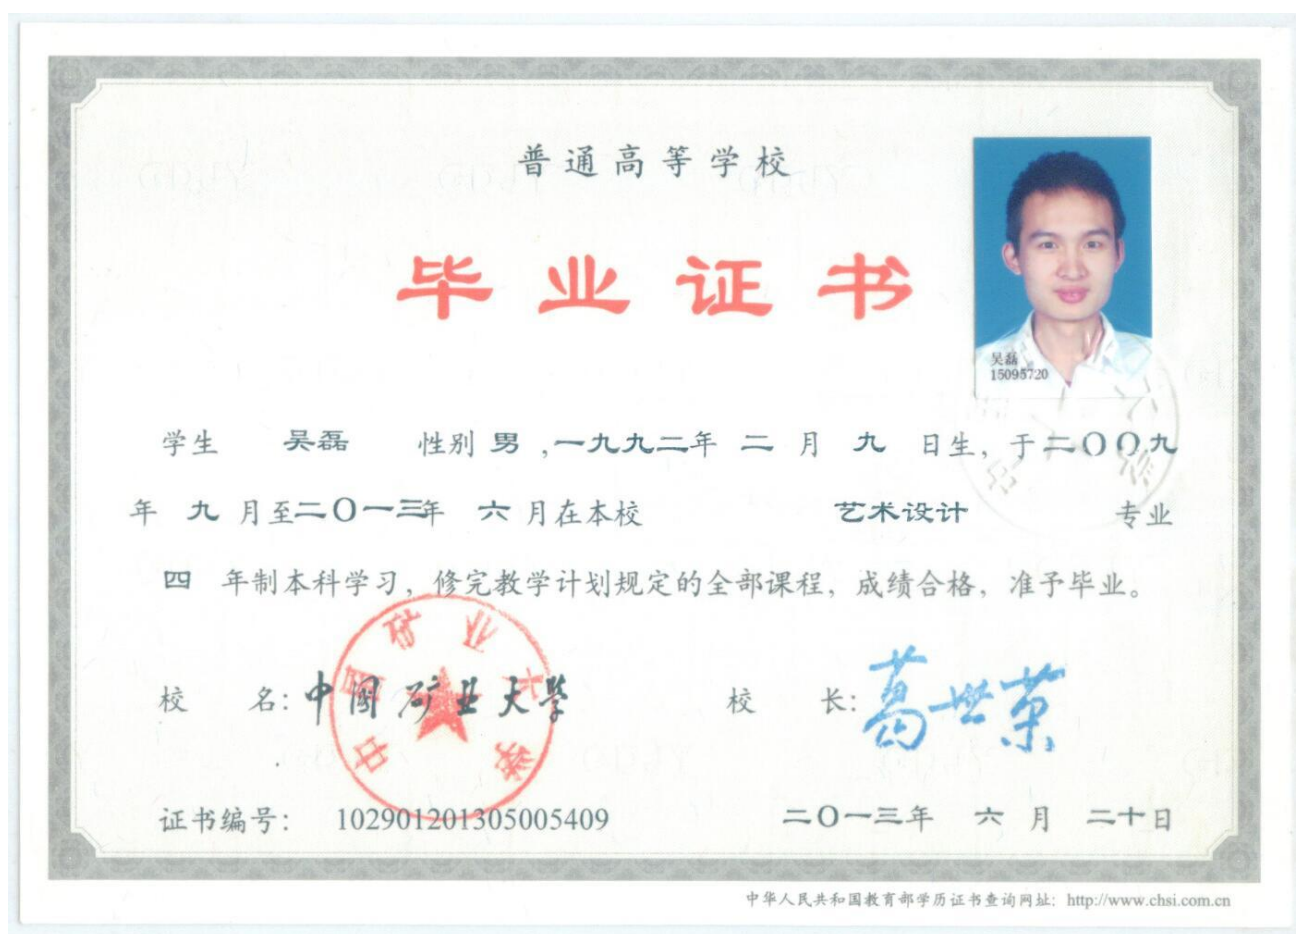 普通高等学校
毕业证书
吴磊
15095720
学生 吴磊 性别 男 ,一九九二年 二 月 九 日生, 于二〇〇九
年 九 月至二〇一三年 六 月在本校 艺术设计 专业
四 年制本科学习, 修完教学计划规定的全部课程, 成绩合格, 准予毕业。
校 名: 中国矿业大学 校 长: 葛世荣
中国矿业大学
证书编号: 102901201305005409 二〇一三年 六 月 二十日
中华人民共和国教育部学历证书查询网址: http://www.chsi.com.cn